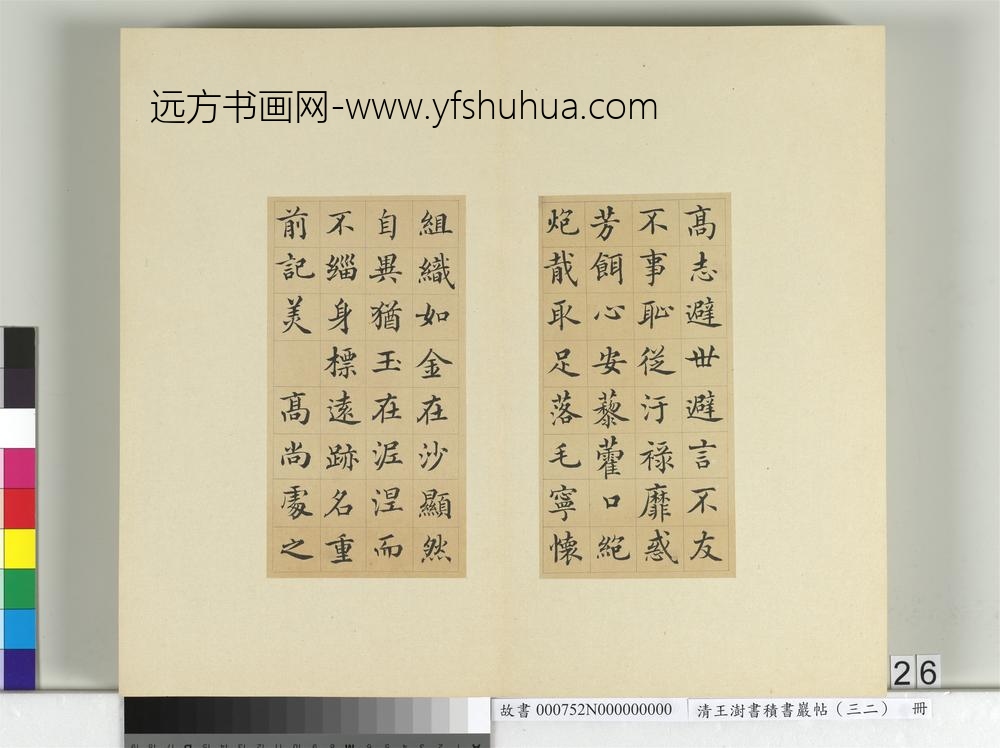 远方书画网-www.yfshuhua.com
髙志避世避言不友
不事恥從汙祿靡惑
芳餌心安藜藿口絶
炮胾取足落毛寧懷
組織如金在沙顯然
自異猶玉在泥涅而
不緇身標遠跡名重
前記美 髙尚處之
26
故書 000752N000000000 清王澍書積書巖帖（三二） 冊